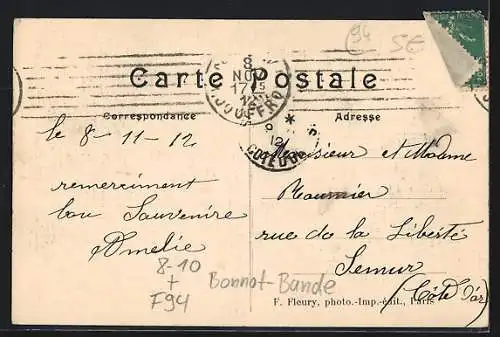 94
5€
8
NO
17
12
JOUFFRO
Carte Postale
Correspondance
Adresse
12
COTE D'OR
le 8-11-12
Monsieur et Madame
remerciment
Roumier
bon Souvenire
rue de la Liberté
Amelie
Semur
8-10
+
F94
Bonnot-Bande
(Côte d'or)
F. Fleury, photo.-Imp.-édit., Paris